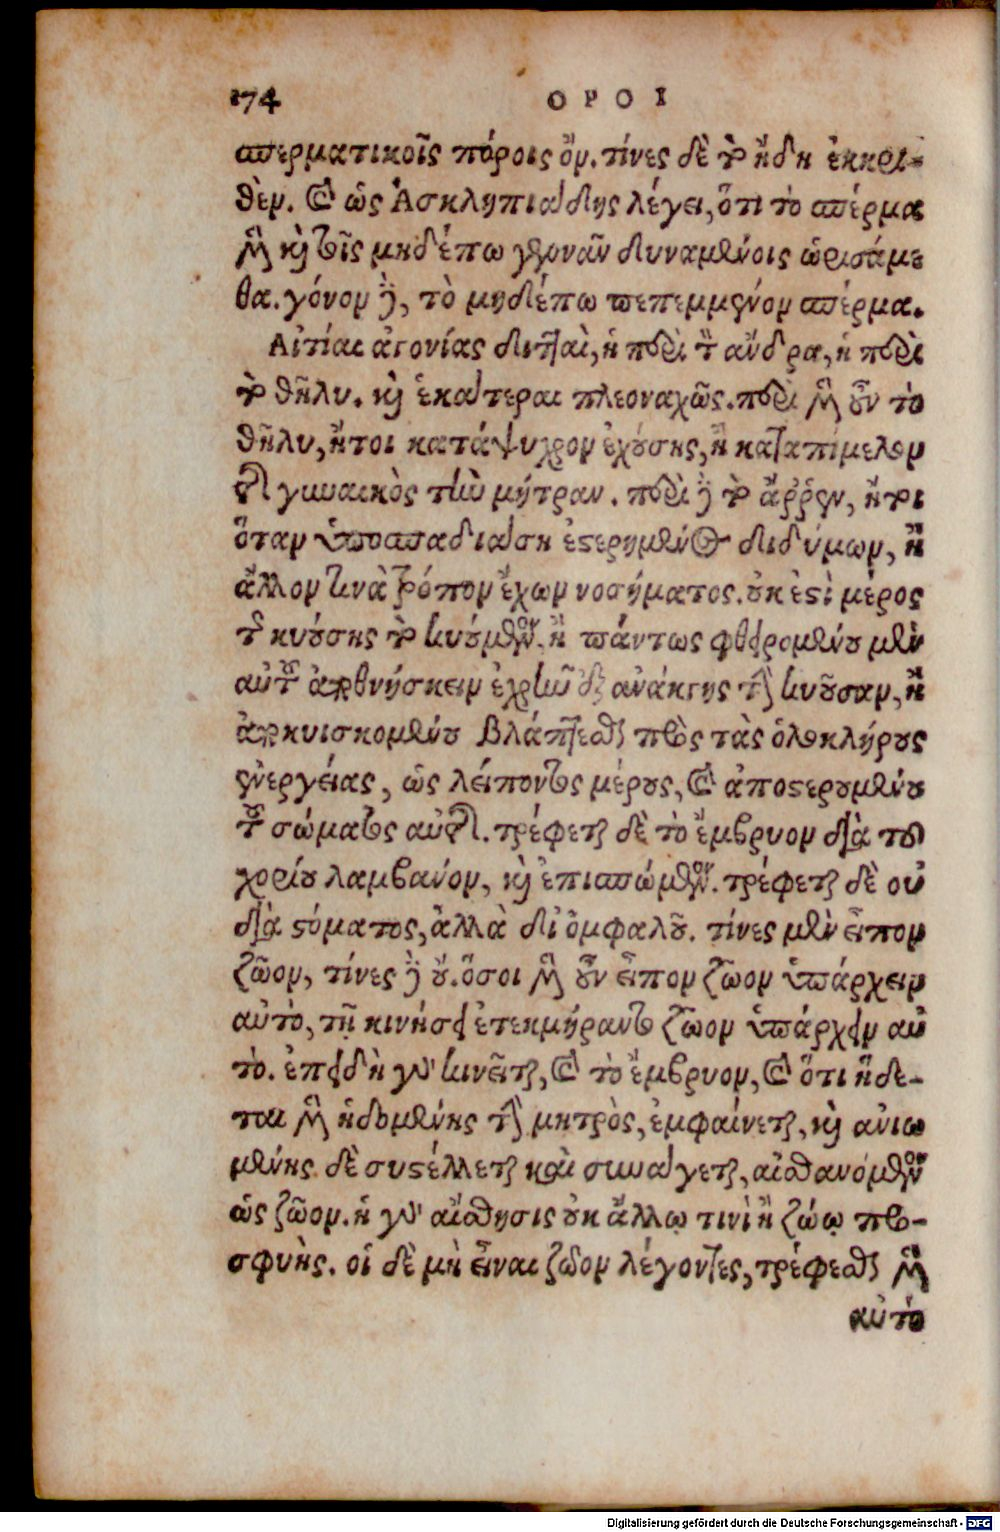 174 ΟΡΟΙ
σπερματικοῖς πόροις ὄν. τίνες δὲ τὸ ἤδη ἐκκρι-
θὲν. καὶ ὡς Ἀσκληπιάδης λέγει, ὅτι τὸ σπέρμα
μὴν καὶ τοῖς μηδέπω γεννᾶν δυναμένοις ὡρισάμε
θα. γόνον δὲ, τὸ μηδέπω πεπεμμένον σπέρμα.
Αἰτίαι ἀγονίας διτταὶ, ἡ περὶ τὸν ἄνδρα, ἡ περὶ
τὸ θῆλυ. καὶ ἑκάτεραι πλεοναχῶς. περὶ μὲν οὖν τὸ
θῆλυ, ἤτοι κατάψυχρον ἐχούσης, ἢ καταπίμελον
τῆς γυναικὸς τὴν μήτραν. περὶ δὲ τὸ ἄῤῥεν, ἤτοι
ὅταν ὑποσπαδιάσῃ ἐστερημένος διδύμων, ἢ
ἄλλον τινὰ τρόπον ἔχων νοσήματος. οὐκ ἐστὶ μέρος
τῆς κυούσης τὸ κυούμενον. ἢ πάντως φθειρομένου μὲν
αὐτοῦ ἀποθνήσκειν ἐχρῆν ἐξ ἀνάκγης τὴν κυοῦσαν, ἢ
ἀποκυισκομένου βλάπτεσθαι πρὸς τὰς ὁλοκλήρους
ἐνεργείας, ὡς λείποντος μέρους, καὶ ἀποστερουμένου
τοῦ σώματος αὐτῆς. τρέφεται δὲ τὸ ἔμβρυον διὰ τοῦ
χορίου λαμβανόν, καὶ ἐπισπώμενον. τρέφεται δὲ οὐ
διὰ στόματος, ἀλλὰ δι' ὀμφαλοῦ. τίνες μὲν εἶπον
ζῶον, τίνες δὲ οὔ. ὅσοι μὲν οὖν εἶπον ζῶον ὑπάρχειν
αὐτὸ, τῇ κινήσει ἐτεκμήραντο ζῶον ὑπάρχειν αὐ
τὸ. ἐπειδὴ γὰρ κινεῖται, καὶ τὸ ἔμβρυον, καὶ ὅτι ἥδε-
ται μὲν ἡδομένης τῆς μητρὸς, ἐμφαίνεται, καὶ ἀνιω
μένης δὲ συστέλλεται καὶ συνάγεται, αἰσθανόμενον
ὡς ζῶον. ἡ γὰρ αἴσθησις οὐκ ἄλλῳ τινὶ ἢ ζώῳ προ-
σφυὴς. οἱ δὲ μὴ εἶναι ζῶον λέγοντες, τρέφεσθαι μὲν
αὐτὸ
Digitalisierung gefördert durch die Deutsche Forschungsgemeinschaft - DFG